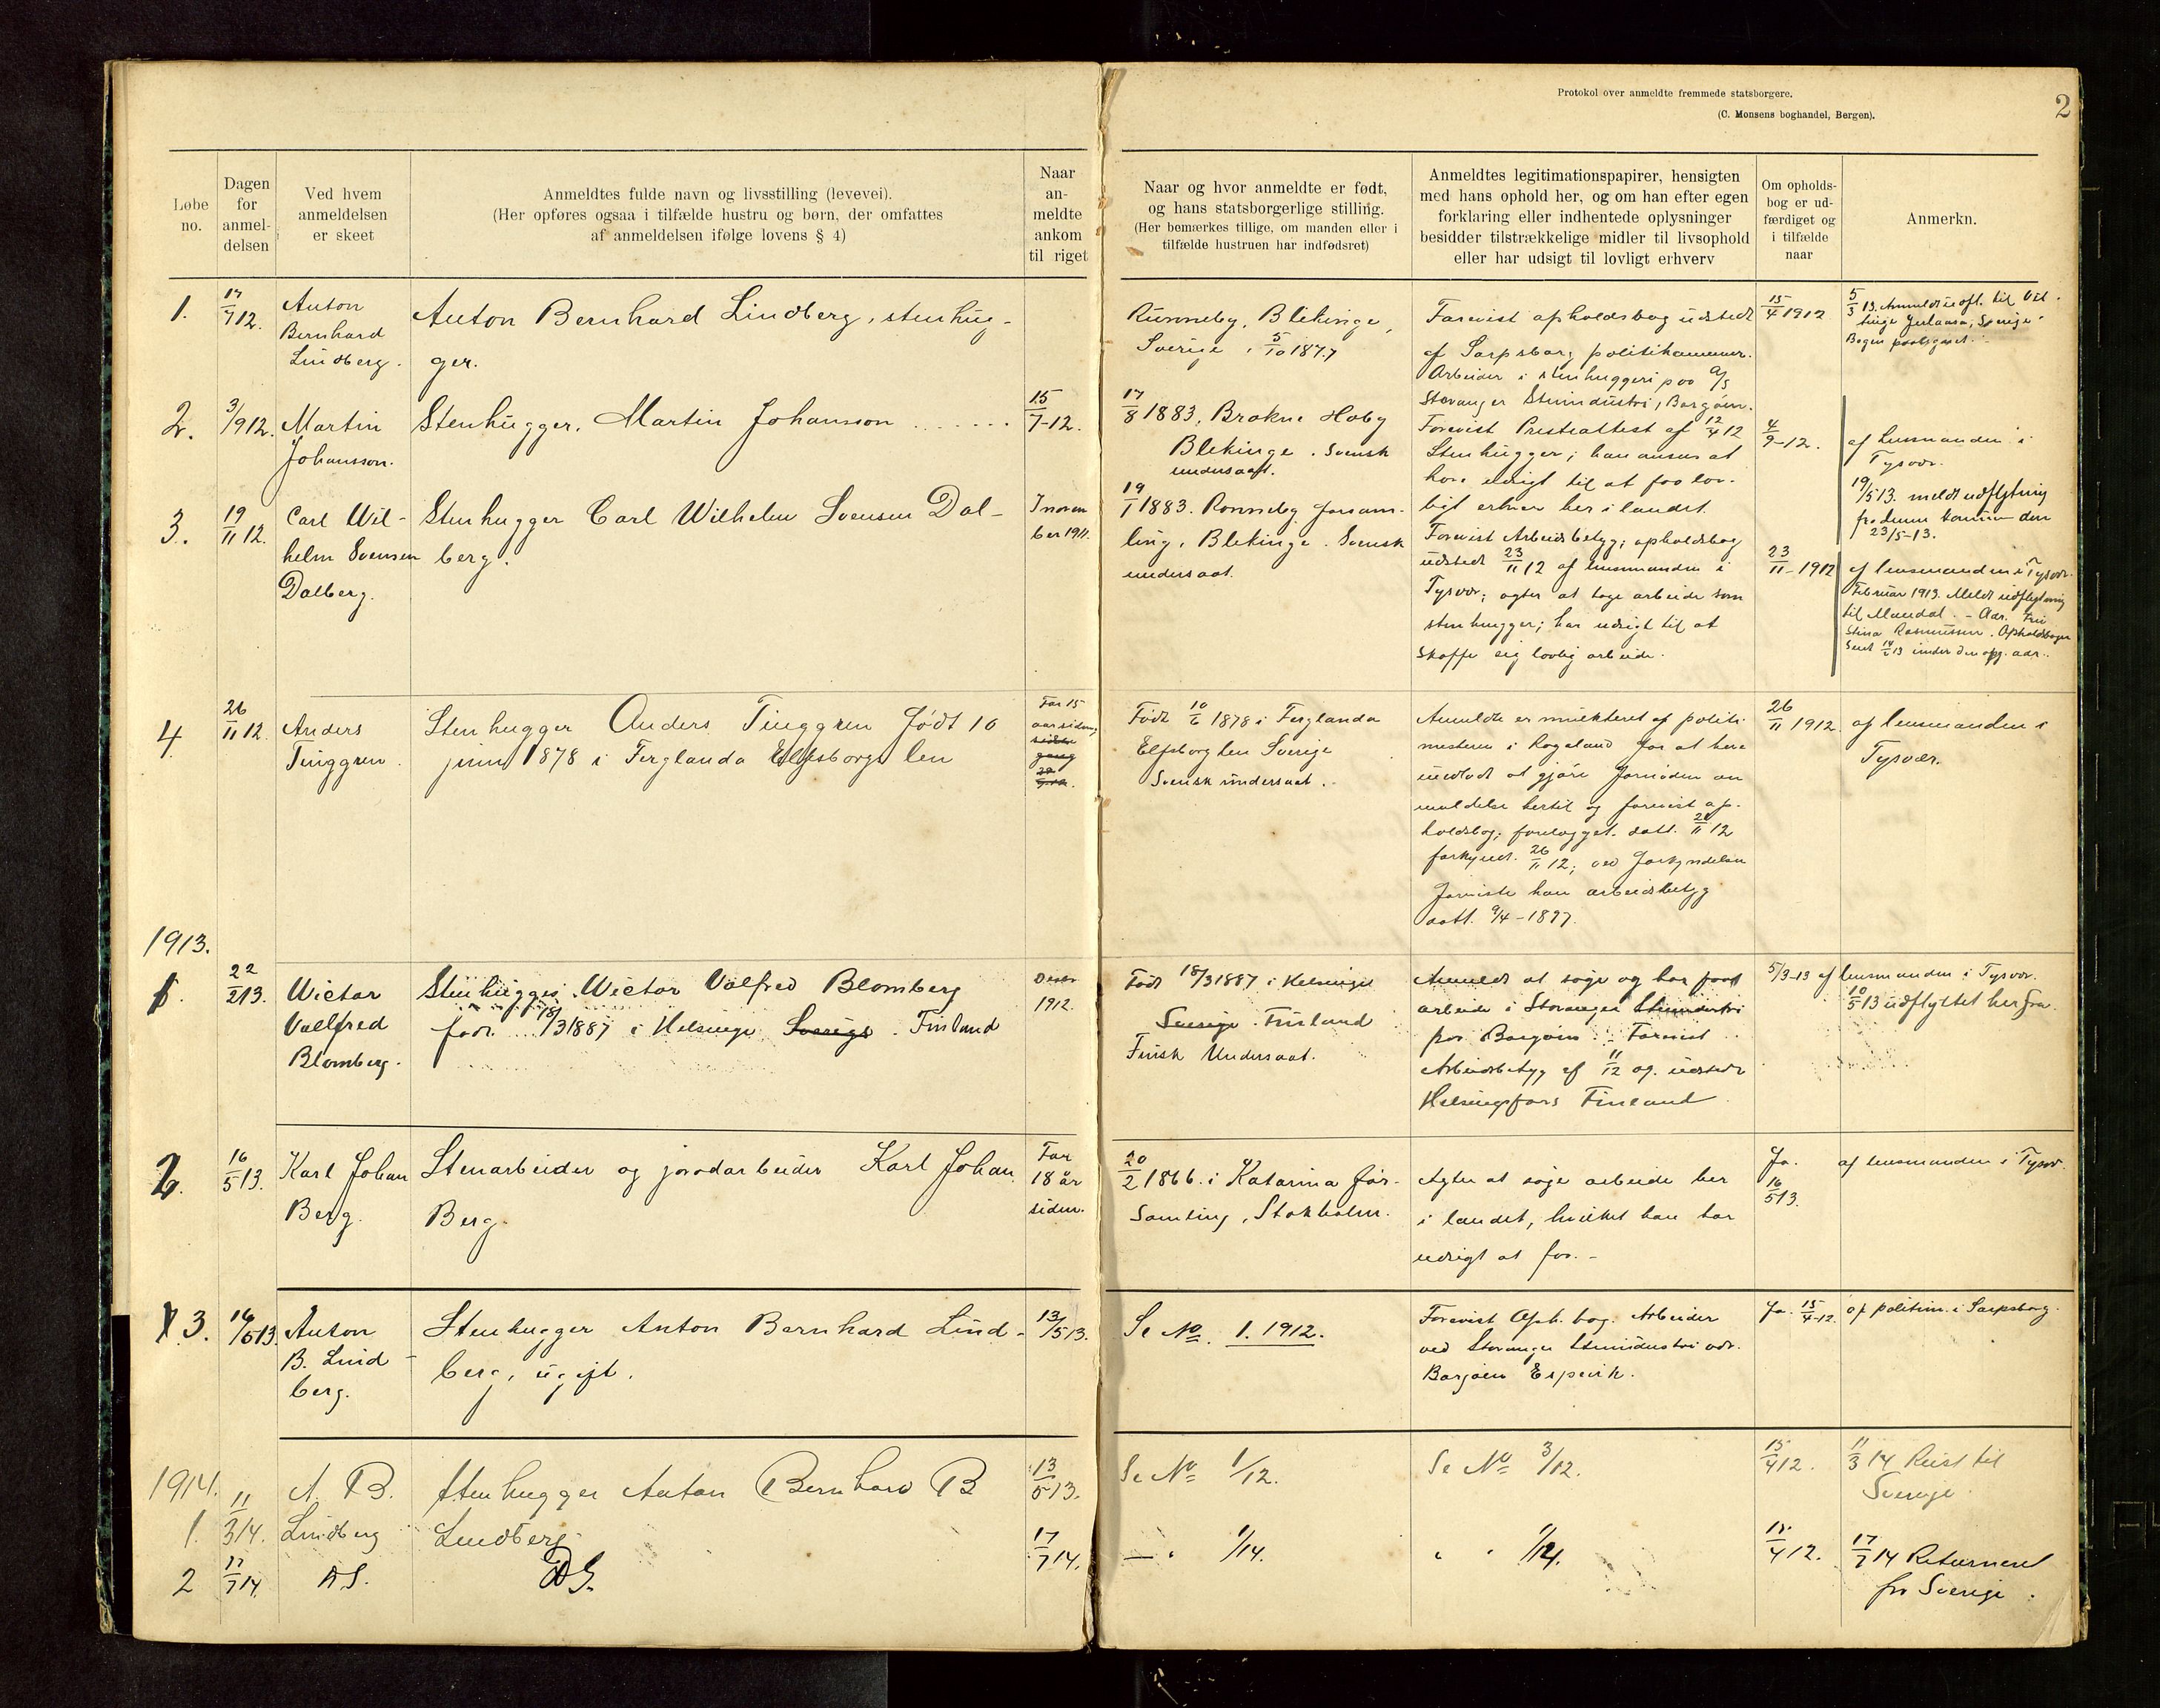 Protokol over anmeldte fremmede statsborgere.
(C. Monsens boghandel, Bergen).
2
Løbe no.
Dagen for anmel- delsen
Ved hvem anmeldelsen er skeet
Anmeldtes fulde navn og livsstilling (levevei).
(Her opføres ogsaa i tilfælde hustru og børn, der omfattes
af anmeldelsen ifølge lovens § 4)
Naar an- meldte ankom til riget
Naar og hvor anmeldte er født,
og hans statsborgerlige stilling.
(Her bemærkes tillige, om manden eller i
tilfælde hustruen har indfødsret)
Anmeldtes legitimationspapirer, hensigten
med hans ophold her, og om han efter egen
forklaring eller indhentede oplysninger
besidder tilstrækkelige midler til livsophold
eller har udsigt til lovligt erhverv
Om opholds- bog er ud- færdiget og i tilfælde naar
Anmerkn.
1.
17/7 12.
Anton
Bernhard
Lindberg.
Anton Bernhard Lindberg, stenhug-
ger.
Rünneby, Blekinge,
Sverige, 5/10 1877
Forevist opholdsbog udstedt
af Sarpsborg politikammer.
Arbeider i stenhuggeri paa
Stavanger Stenindüstri, Borgøen.
15/4 1912
5/3 13. Anmeldt til
Sverige.
2.
3/9 12.
Martin
Johansson.
Stenhügger, Martin Johansson
15/7-12.
17/8 1883, Brakne Hoby
Blekinge. Svensk
undersaat.
Forevist Presteattest af 12/4 12
Stenhügger; han ansees at
have udsigt til at faa lov-
ligt erhverv her i landet.
4/9-12.
af lensmanden i
Tysvær.
19/5 13. meldt udflytning
fra denne kommune den
23/5-13.
3.
19/11 12.
Carl Wil-
helm Svensen
Dalberg.
Stenhugger Carl Wilhelm Svensen Dal-
berg.
I novem
ber 1911.
19/1 1883. Ronneby forsam-
ling, Blekinge. Svensk
undersaat.
Forevist Arbeidsbetyg; opholdsbog
udstedt 23/11 12 af lensmanden i
Tysvær; agter at tage arbeide som
stenhugger; har udsigt til at
skaffe sig lovlig arbeide.
23/11-1912
af lensmanden i Tysvær.
Februar 1913. Meldt udflytning
til Mandal. - Adr. Frü
Stina Rasmüssen. Opholdsbogen
sent 14/2 13 under den opg. adr.
4
26/11 12.
Anders
Tinggren.
Stenhugger Anders Tinggren født 10
juni 1878 i Ferglanda Elfsborgs len
For 15
aar siden
Født 10/6 1878 i Ferglanda
Elfsborg len Sverige
Svensk undersaat.
Anmeldte er mulkteret af politi-
mesteren i Rogaland for at have
undladt at gjøre fornøden an
meldelse hertil og forevist op-
holdsbog; forelægget. datt. 11 12
forkyndt. 26/11 12; ved forkyndelsen
foreviste han arbeidsbetyg
datt. 9/4-1897.
26/11 1912.
af lensmanden i
Tysvær.
1913.
1.
22/2 13.
Wictor
Vallfred
Blomberg.
Stenhugger Wictor Valfred Blomberg
født 18/3 1887 i Helsinge Sverige. Finland
Decbr
1912.
Født 18/3 1887 i Helsinge
Sverige. Finland
Finsk Undersaat.
Anmeldt at søge og har faat
arbeide i Stavanger Stenindustri
paa Borgøen. Forevist
Arbeidsbetyg af 11/12 og. udstedt
Helsingsfors Finland
5/3-13 af lensmanden i Tysvær.
10/5 13 udflyttet herfra.
2.
16/5 13.
Karl Johan
Berg.
Stenarbeider og jordarbeider Karl Johan
Berg.
For
18 år
siden.
20/2 1866. i Katarina för-
samling, Stokholm.
Agter at søge arbeide her
i landet, hvilket han har
udsigt at faa. -
Ja.
16/5 13.
af lensmanden i Tysvær.
3.
16/5 13.
Anton
B. Lind
berg.
Stenhugger Anton Bernhard Lind-
berg, ugift.
13/5 13.
Se No. 1. 1912.
Forevist Oph. bog. Arbeider
ved Stavanger Stenindustri
Borgøen Espevik.
Ja. 15/4-12.
af politim. i Sarpsborg.
1914.
1.
11/3 14.
A. B.
Lindberg
Stenhugger Anton Bernhard B
Lindberg.
13/5 13.
Se No 1/12.
Se No 3/12.
15/4 12.
11/3 14 Reist til
Sverige
2
17/7 14.
DS.
DS.
17/7 14.
— " 1/14.
" " 1/14.
15/4 12.
17/7 14 Returneret
fra Sverige.